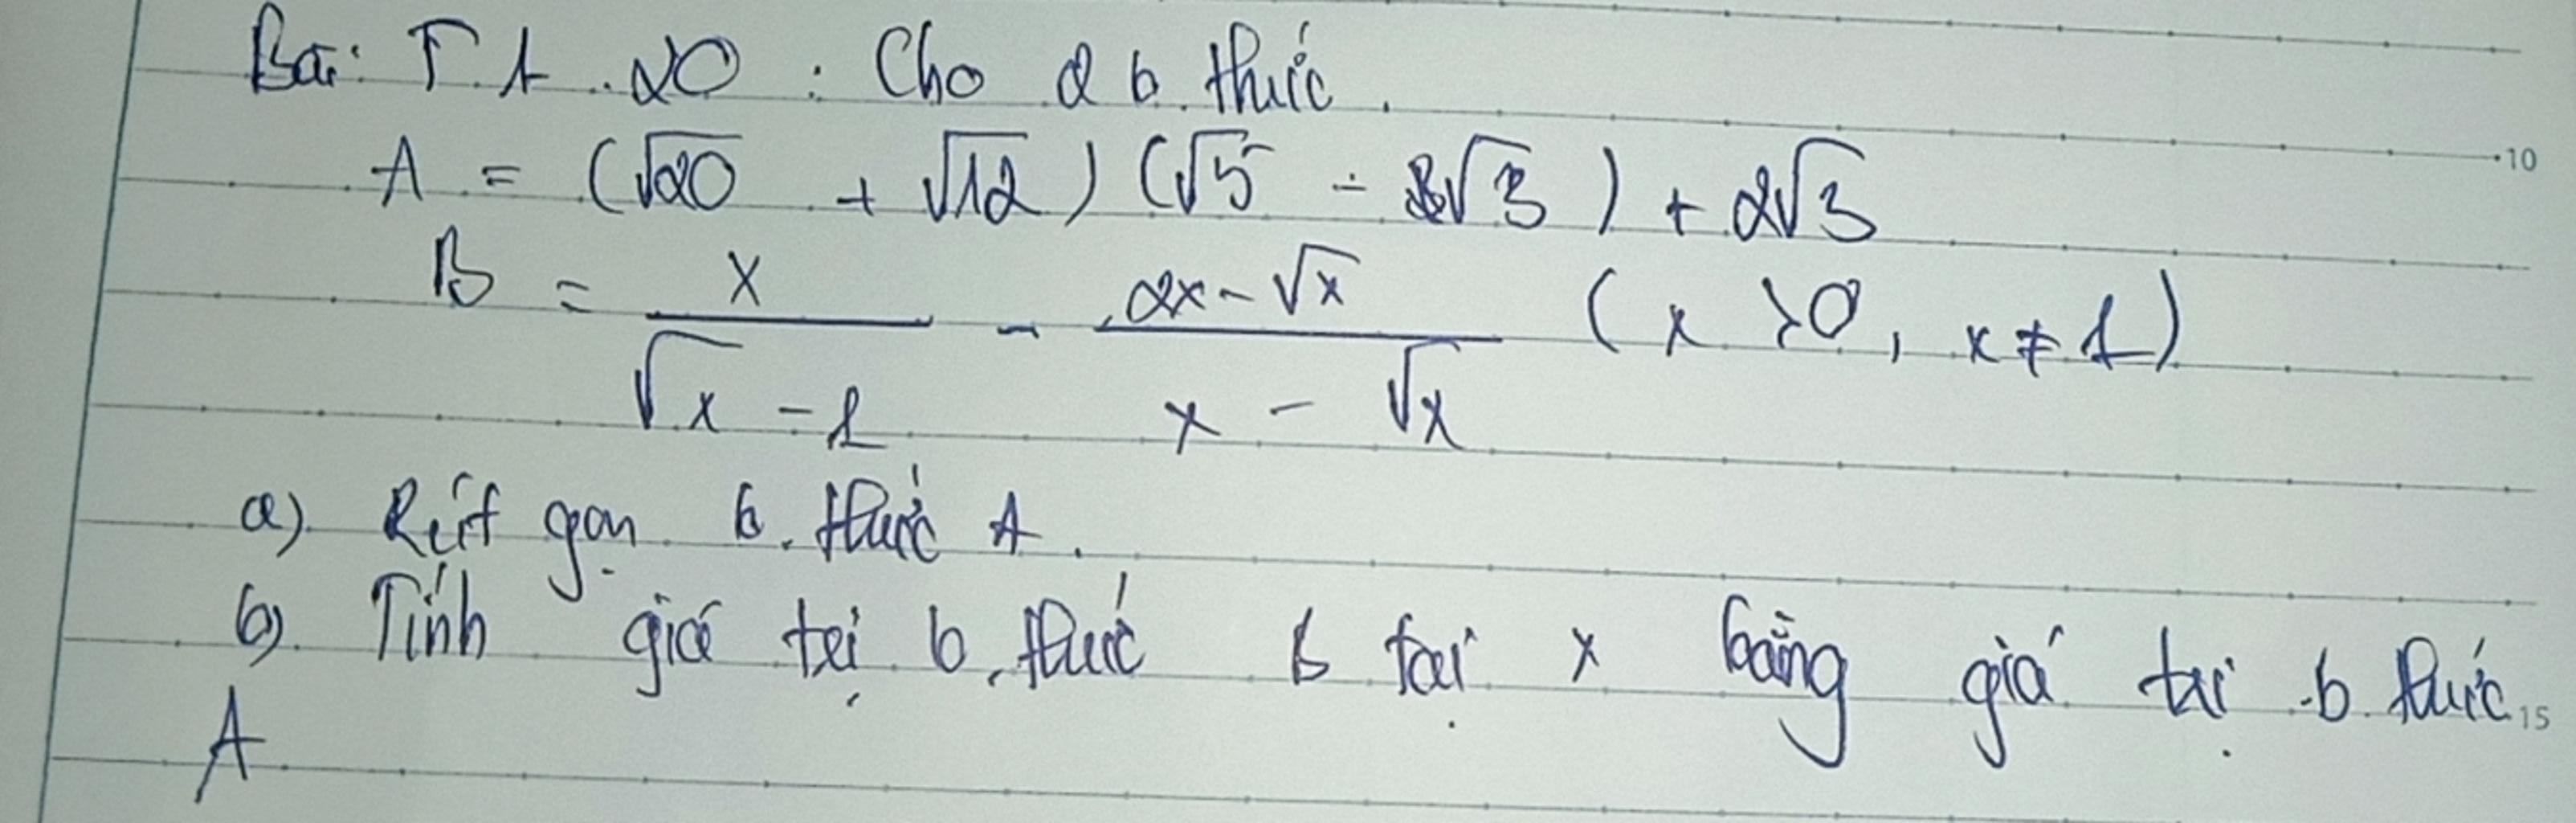 Bài T1.20 : Cho 2 b.thức.
A = (√20 + √12) (√5 - √3) + 2√3
B = x/(√x - 1) - (2x - √x)/(x - √x) (x > 0, x ≠ 1)
a). Rút gọn b.thức A.
b). Tính giá trị b.thức B tại x bằng giá trị b.thức
A
10
15